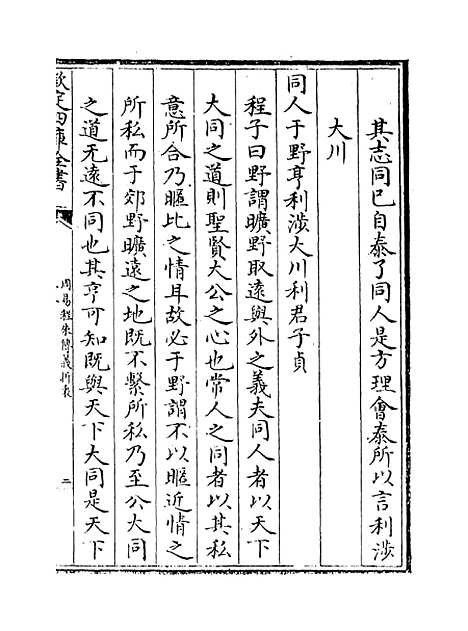 其志同已自泰了同人是方理會泰所以言利涉
大川
同人于野亨利涉大川利君子貞
程子曰野謂曠野取遠與外之義夫同人者以天下
大同之道則聖賢大公之心也常人之同者以其私
意所合乃暱比之情耳故必于野謂不以暱近情之
所私而于郊野曠遠之地既不繫所私乃至公大同
之道无遠不同也其亨可知既與天下大同是天下
欽定四庫全書
周易程朱傳義折衷
二